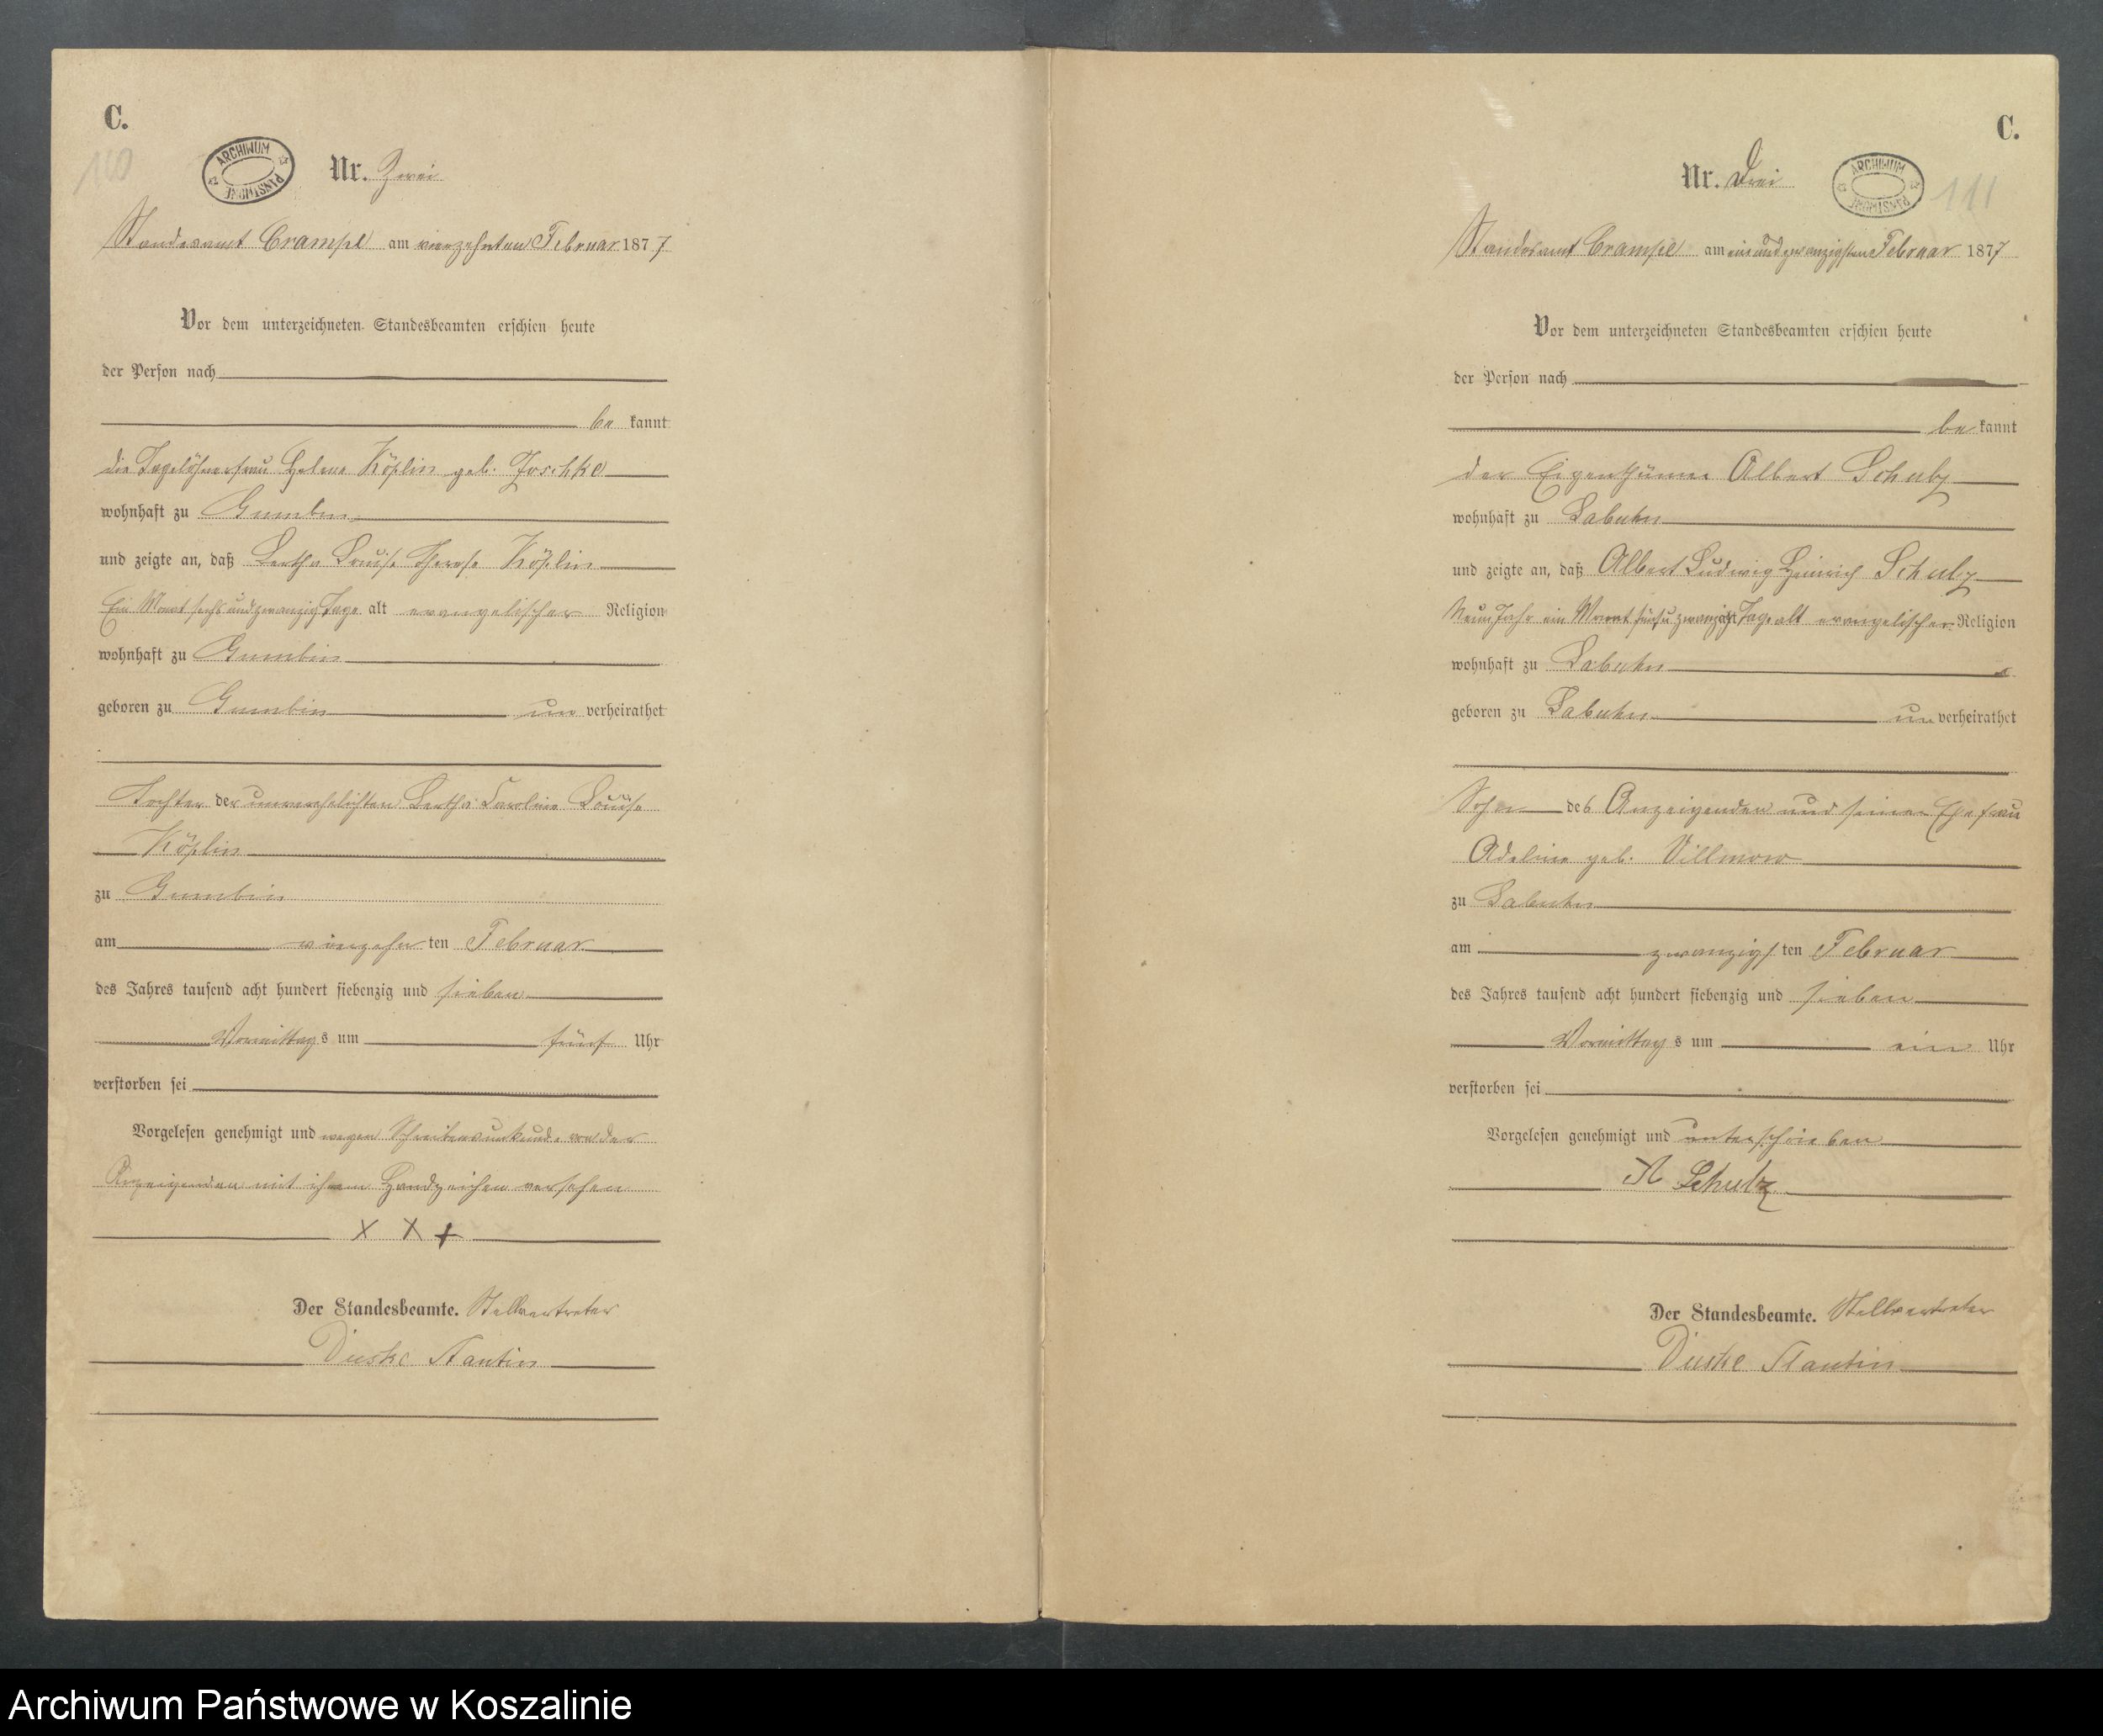 C.
110
ARCHIWUM PAŃSTWOWE
Nr. Zwei
Standesamt Crampe am vierzehnten Februar 1877
Vor dem unterzeichneten Standesbeamten erschien heute
der Person nach
be kannt
die Tagelöhnerfrau Helene Köplin geb.
wohnhaft zu Gumbin
und zeigte an, daß Bertha Louise Therese Köplin
Ein Monat sechs und zwanzig Tage alt evangelischer Religion
wohnhaft zu Gumbin
geboren zu Gumbin un verheirathet
Tochter der unverehelichten Bertha Caroline Louise
Köplin
zu Gumbin
am vierzehn ten Februar
des Jahres tausend acht hundert siebenzig und sieben
Vormittag s um fünf Uhr
verstorben sei
Vorgelesen genehmigt und wegen Schreibensunkunde von der
Anzeigenden mit ihrem Handzeichen versehen
X X X
Der Standesbeamte. Stellvertreter
Duske Stantin
C.
Nr. Drei
ARCHIWUM PAŃSTWOWE
111
Standesamt Crampe am ein und zwanzigsten Februar 1877
Vor dem unterzeichneten Standesbeamten erschien heute
der Person nach
be kannt
der Eigenthümer Albert Schulz
wohnhaft zu Labuhn
und zeigte an, daß Albert Ludwig Heinrich Schulz
Neun Jahr ein Monat fünf u zwanzig Tage alt evangelischer Religion
wohnhaft zu Labuhn
geboren zu Labuhn un verheirathet
Sohn des Anzeigenden und seiner Ehefrau
Adeline geb. Villmow
zu Labuhn
am zwanzigs ten Februar
des Jahres tausend acht hundert siebenzig und sieben
Vormittag s um ein Uhr
verstorben sei
Vorgelesen genehmigt und unterschrieben
A Schulz
Der Standesbeamte. Stellvertreter
Duske Stantin
Archiwum Państwowe w Koszalinie